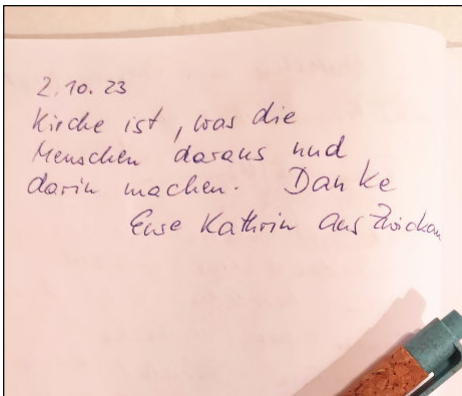 2.10.23
Kirche ist, was die
Menschen daraus und
darin machen. Danke
Eure Kathrin aus Zwickau